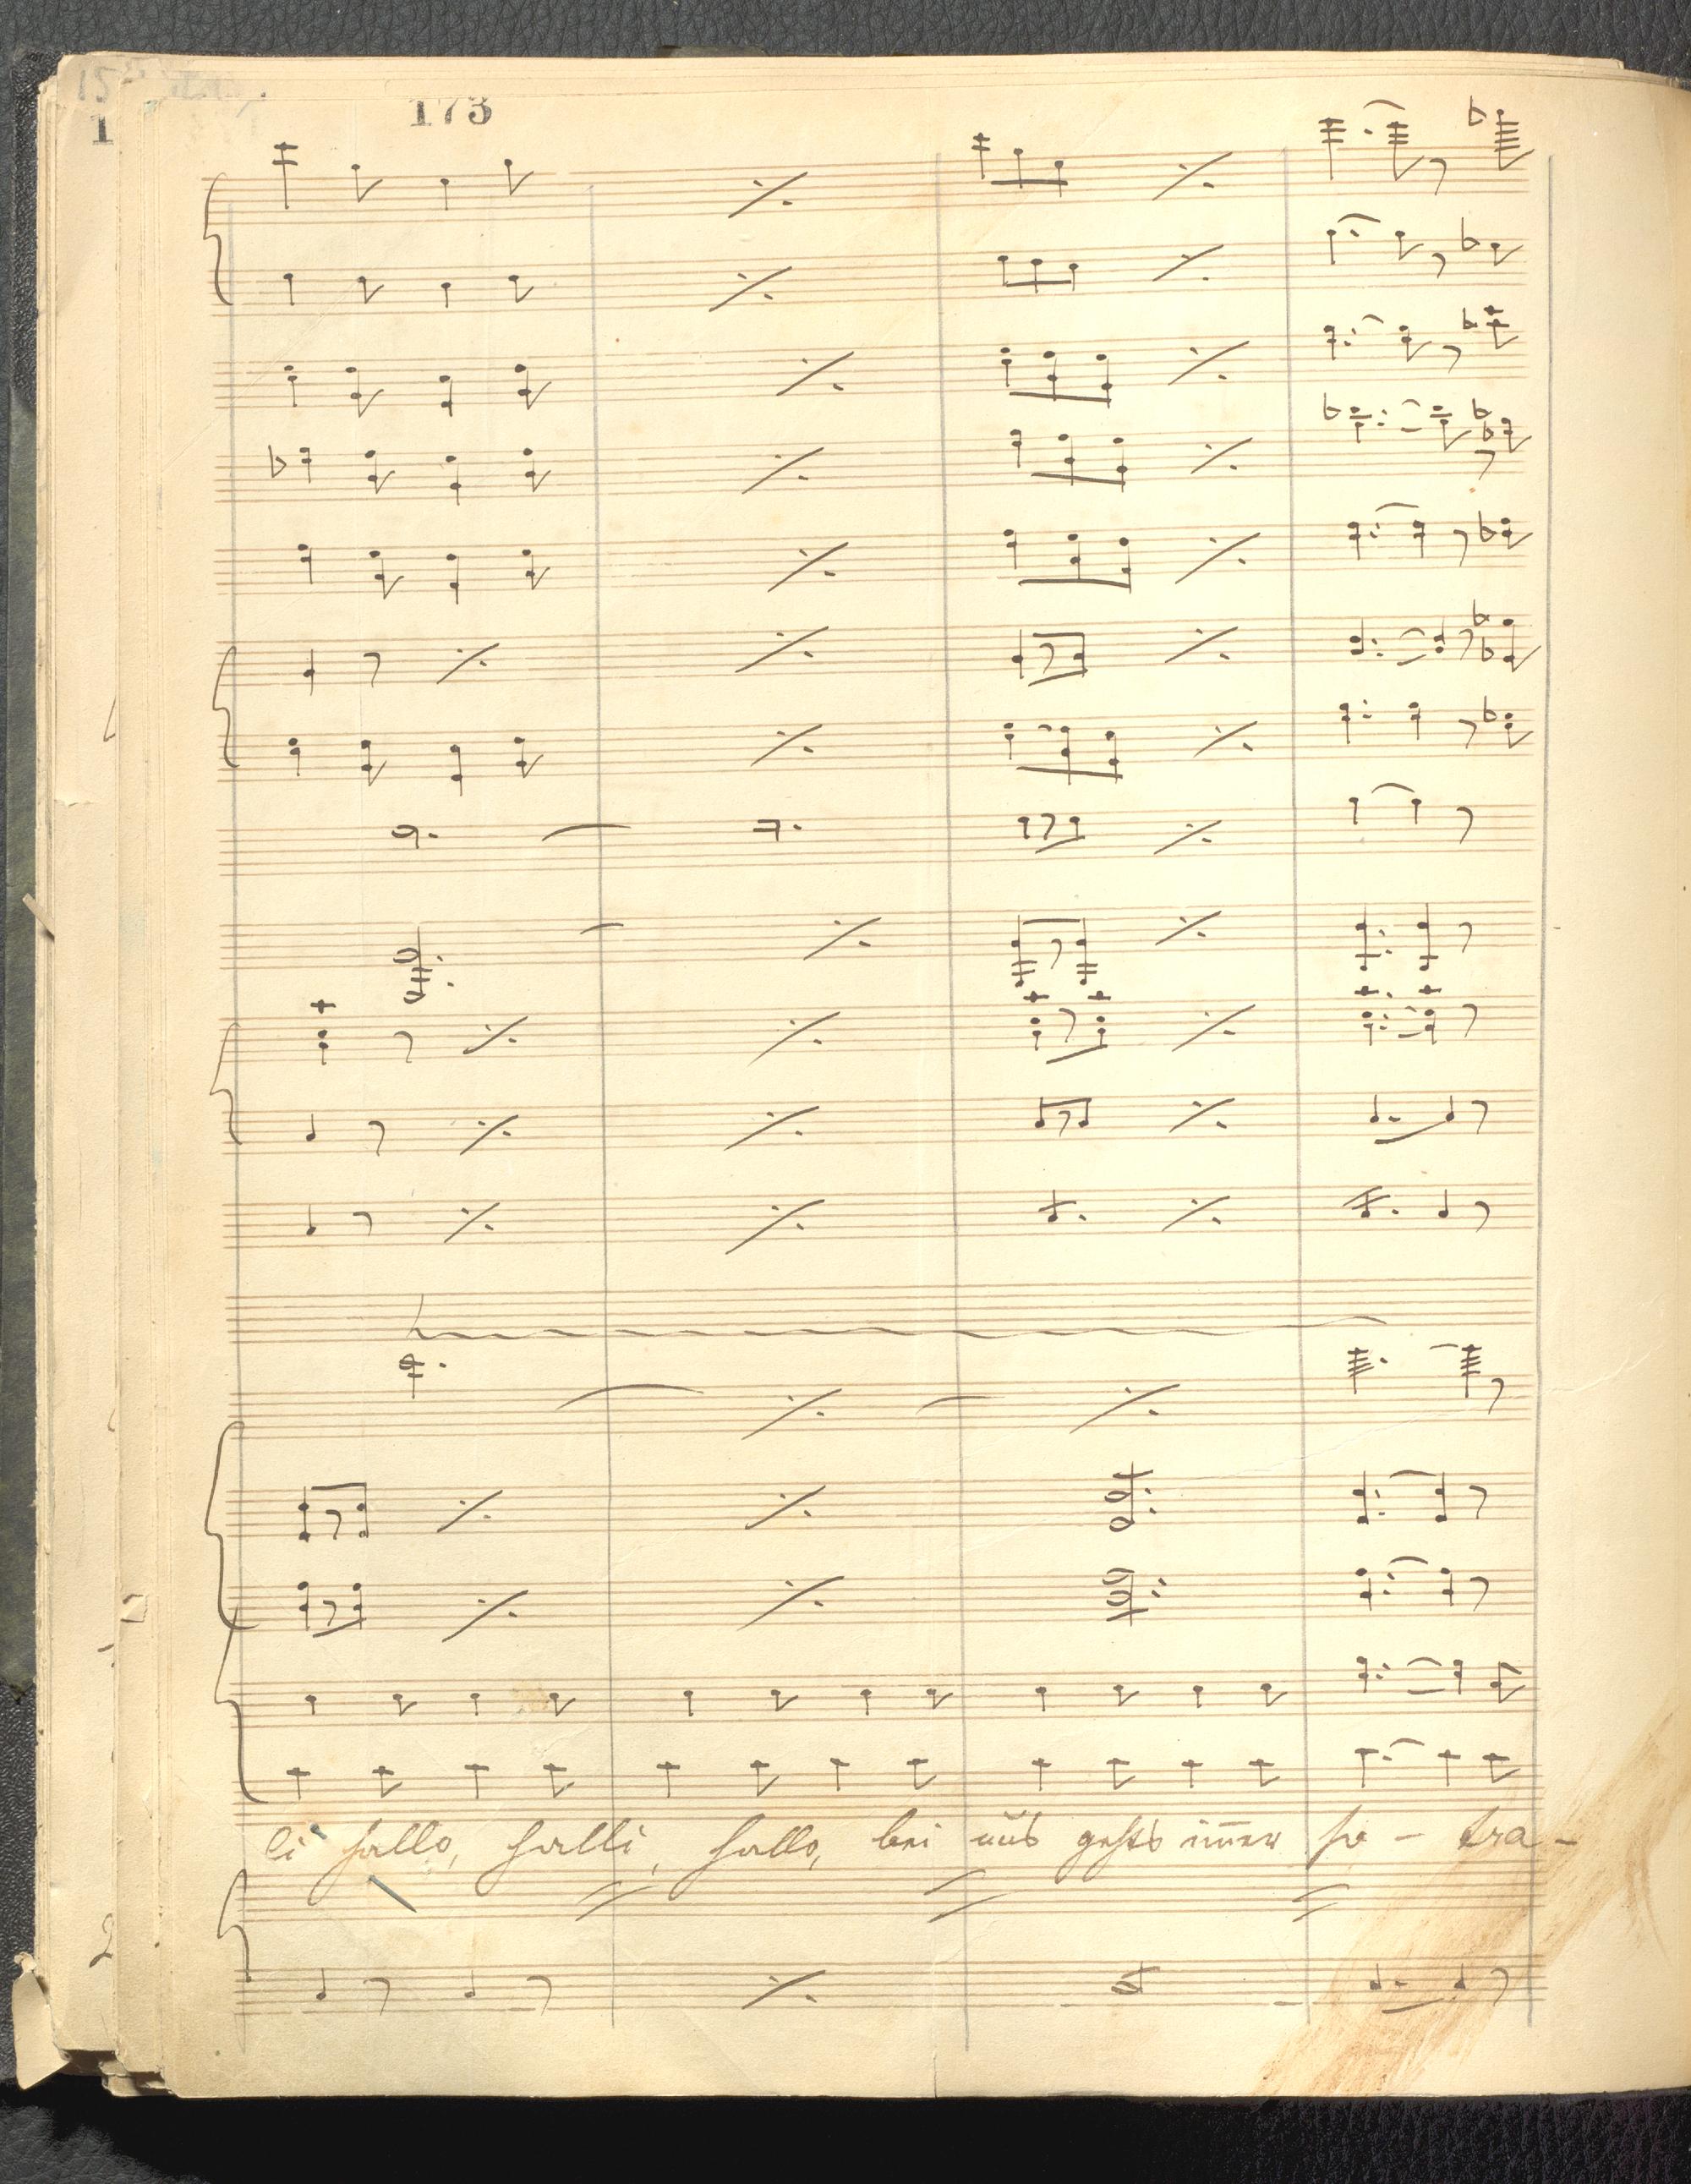 173
1
li hallo, halli, hallo, bei uns gehts im̄er ho - tra -
2